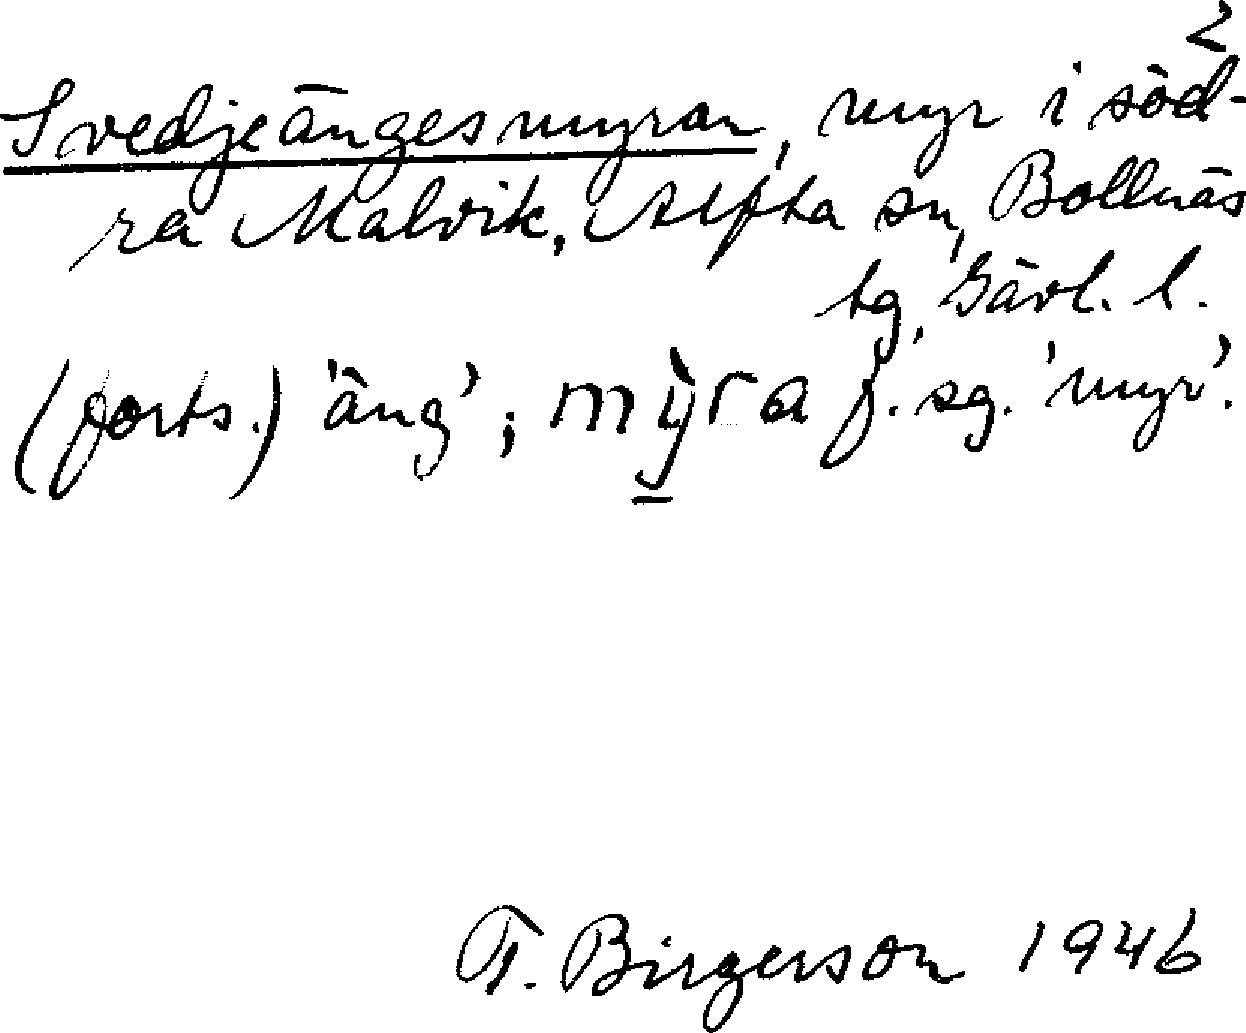 2
Svedjeängesmyran, myr i söd-
ra Malvik, Alfta sn, Bollnäs
tg, Gävl. l.
(forts.) 'äng'; mỳra f. sg. 'myr'.
F. Birgerson 1946